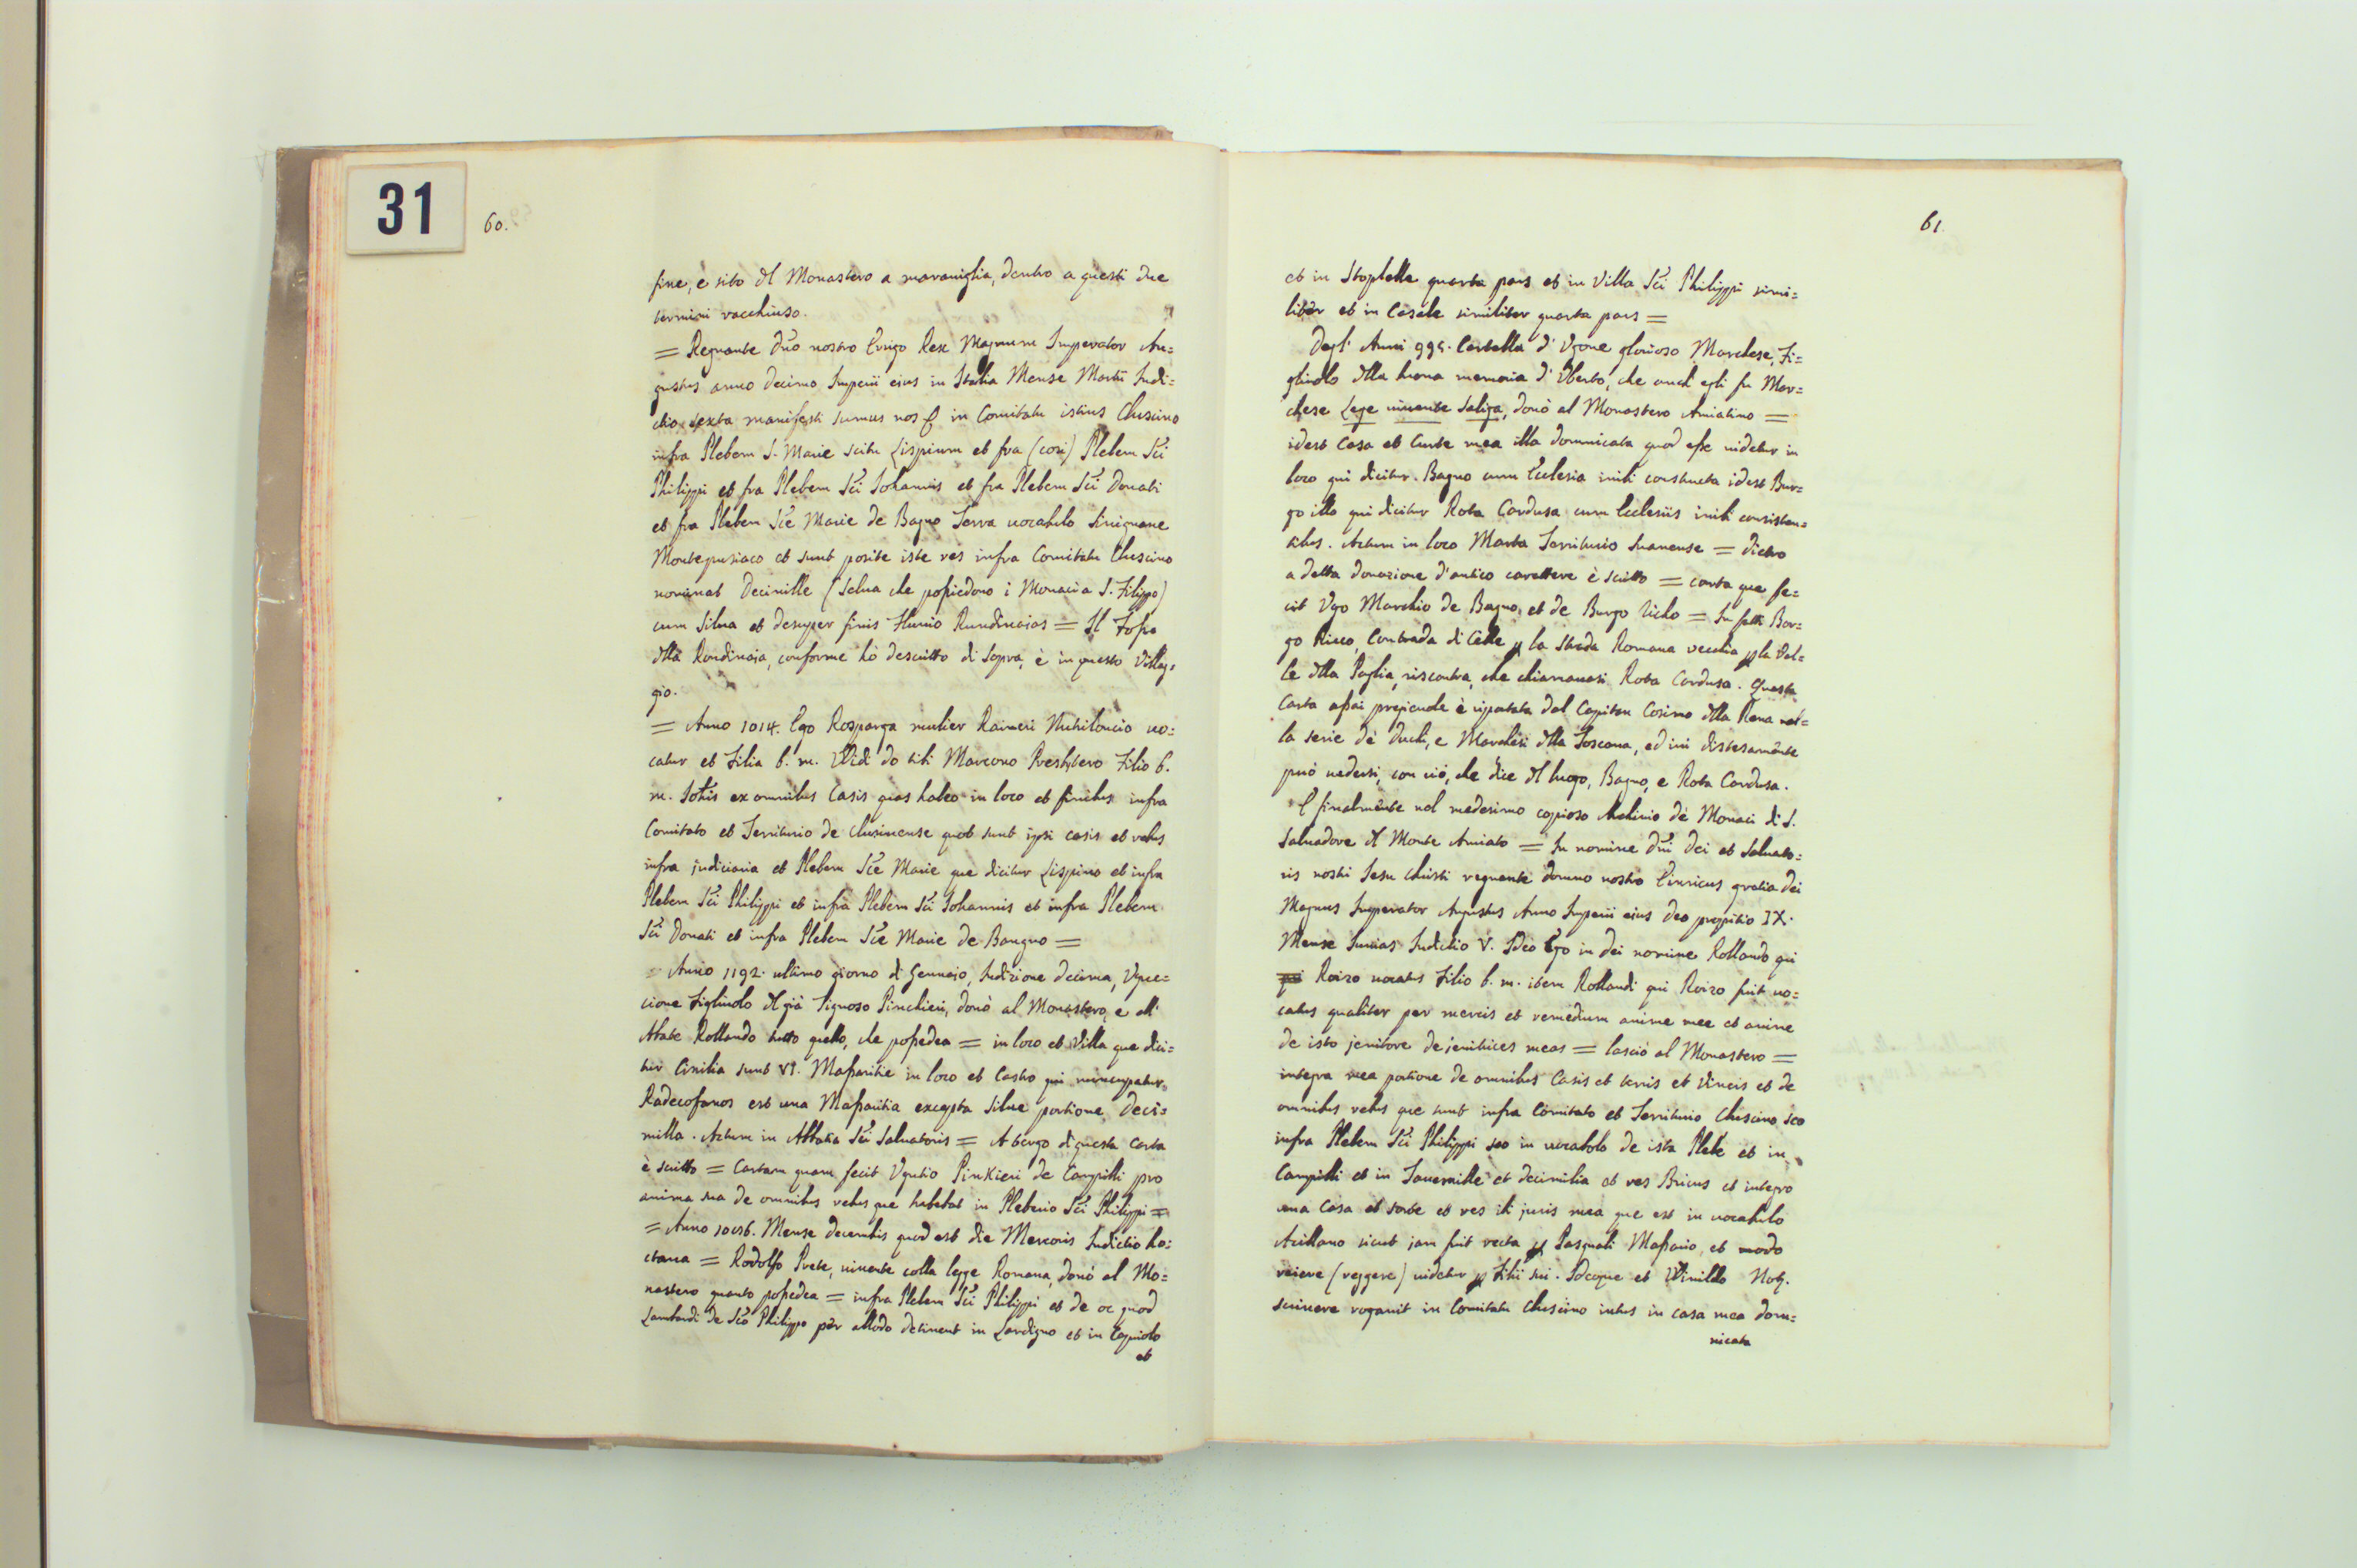 31
60.
fine, e sito dl Monastero a maraviglia, dentro a questi due
termini racchiuso.
= Regnante dño nostro Enrigo Rex Magnum Imperator Au=
gustus anno decimo Imperii eius in Italia Mense Martii Indi=
ctio sexta manifesti sumus nos in Comitatu istius Clusino
infra Plebem S. Marie scitu Lispinum et fra (così) Plebem Sci
Philippi et fra Plebem Sci Iohannis et fra Plebem Sci Donati
et fra Plebem Sce Marie de Bagno Terra uocabulo Sinignane
Montepusiaco et sunt posite iste res infra Comitatu Clusino
nominat Decimille (Selua che possiedono i Monaci a S. Filippo)
cum Silua et desuper finis Flumio Rundinaias = Il Fosso
dlla Rondinaia, conforme hò descritto di sopra, è in questo Villag=
gio.
= Anno 1014. Ego Rosparga mulier Raineri Nichiloncio uo=
catur et Filia b. m. Widi do tibi Marcono Presbytero Filio b.
m. Iohis ex omnibus Casis quas habeo in loco et finibus infra
Comitato et Territurio de Clusinense quot sunt ipsi casis et rebus
infra judiciaria et Plebem Sce Marie que dicitur Lispino et infra
Plebem Sci Philippi et infra Plebem Sci Iohannis et infra Plebem
Sci Donati et infra Plebem Sce Marie de Baugno =
= Anno 1192. ultimo giorno di Gennaio, Indizione decima, Uguc=
cione Figliuolo dl già Tignoso Pinchieri, donò al Monastero, e all'
Abate Rollando tutto quello, che possedea = in loco et Villa que dici=
tur Cinilia sunt VI. Massaritie in loco et Castro qui nuncupatur
Radecofanos est una Massaritia excepta Silue portione Deci=
milla. Actum in Abbatia Sci Saluatoris = A tergo di questa carta
è scritto = Cartam quam fecit Ugutio Pinkieri de Campilli pro
anima sua de omnibus rebus que habebat in Pleberio Sci Philippi =
= Anno 10056. Mense decembis quod est die Mercoris Indictio ho=
ctaua = Rodolfo Prete, uiuente colla legge Romana, donò al Mo=
nastero quanto possedea = infra Plebem Sci Philippi et de oc quod
Lambardi de Sco Philippo per allodo detinent in Lardigno et in Capiolo
et
61
et in Stoplelle quarta pars et in Villa Sci Philippi simi=
liter et in Casale similiter quarta pars =
Degl' Anni 995. Cartella d' Ugone glorioso Marchese, Fi=
gliuolo dlla buona memoria d' Uberto, che anch' egli fu Mar=
chese Lege uiuente Saliga, donò al Monastero Amiatino =
idest Casa et Curte mea illa domnicata quod esse uidetur in
loco qui dicitur Bagno cum Ecclesia inibi constructa idest Bur=
go illo qui dicitur Rota Cardusa cum Ecclesiis inibi consisten=
tibus. Actum in loco Marta Territurio Suanense = dietro
a detta donazione d'antico carattere è scritto = carta que fe=
cit Ugo Marchio de Bagno, et de Burgo Richo = In fatti Bor=
go Ricco, Contrada di Celle p la strada Romana vecchia p la Val=
le dlla Paglia, riscontra, che chiamauasi Rota Cardusa. Questa
Carta assai pregieuole è riportata dal Capitan Cosimo dlla Rena nel=
la serie de' Duchi, e Marchesi dlla Toscana, ed iui distesamente
può uedersi, con ciò, che dice dl luogo, Bagno, e Rota Cardusa.
E finalmente nel medesimo copioso Archivio de' Monaci di S.
Saluadore dl Monte Amiato = In nomine Dni Dei et Saluato=
ris nostri Iesu Christi regnante domno nostro Einricus gratia Dei
Magnus Imperator Augustus Anno Imperii eius deo propitio IX.
Mense Iunias Indictio V. Ideo Ego in dei nomine Rollando qui
qui Roizo uocatus Filio b. m. item Rollandi qui Roizo fuit uo=
catus qualiter per mercis et remedium anime mee et anime
de isto jenitore de jenitrices meas = lasciò al Monastero =
integra mea portione de omnibus Casis et terris et Vineis et de
omnibus rebus que sunt infra Comitato et Territurio Clusino seo
infra Plebem Sci Philippi seo in uocabolo de ista Plebe et in
Campilli et in Tauernille et decimilia et res Bricus et integro
una Casa et sorte et res ili juris mea que est in uocabulo
Acillano sicut jam fuit recta p Pasquali Massario, et modo
reiere (reggere) uidetur p Filii sui. Ideoque et Winildo Notz.
scriuere rogauit in Comitatu Clusino intus in casa mea dom=
nicata